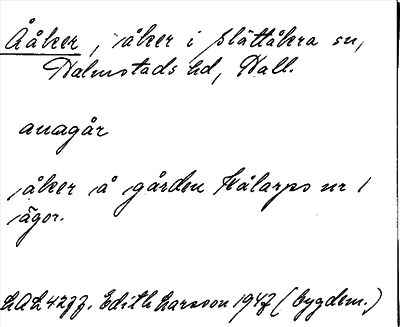 Ååker, åker i Slättåkra sn,
Halmstads hd, Hall.
anagår
åker å gården Hålarps nr 1
ägor.
LAL 4277. Edith Larsson 1947 (bygdem.)